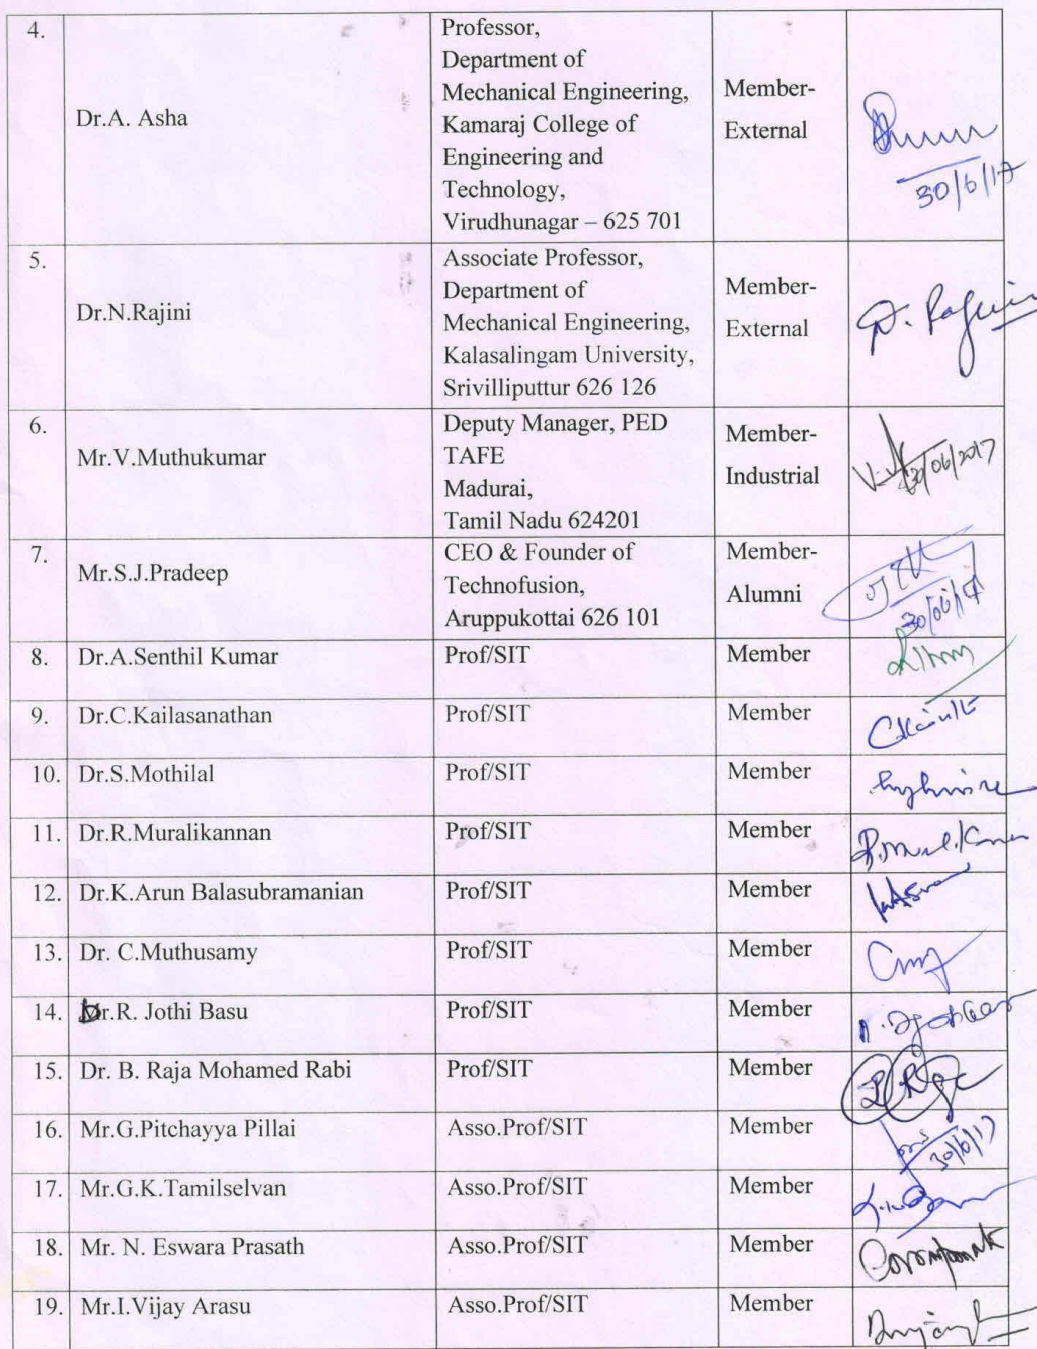 4.
Dr.A. Asha
Professor,
Department of
Mechanical Engineering,
Kamaraj College of
Engineering and
Technology,
Virudhunagar – 625 701
Member-
External
30/6/17
5.
Dr.N.Rajini
Associate Professor,
Department of
Mechanical Engineering,
Kalasalingam University,
Srivilliputtur 626 126
Member-
External
6.
Mr.V.Muthukumar
Deputy Manager, PED
TAFE
Madurai,
Tamil Nadu 624201
Member-
Industrial
30/06/2017
7.
Mr.S.J.Pradeep
CEO & Founder of
Technofusion,
Aruppukottai 626 101
Member-
Alumni
30/06/17
8. Dr.A.Senthil Kumar Prof/SIT Member
9. Dr.C.Kailasanathan Prof/SIT Member
10. Dr.S.Mothilal Prof/SIT Member
11. Dr.R.Muralikannan Prof/SIT Member
12. Dr.K.Arun Balasubramanian Prof/SIT Member
13. Dr. C.Muthusamy Prof/SIT Member
14. Dr.R. Jothi Basu Prof/SIT Member
15. Dr. B. Raja Mohamed Rabi Prof/SIT Member
16. Mr.G.Pitchayya Pillai Asso.Prof/SIT Member
30/6/17
17. Mr.G.K.Tamilselvan Asso.Prof/SIT Member
18. Mr. N. Eswara Prasath Asso.Prof/SIT Member
19. Mr.I.Vijay Arasu Asso.Prof/SIT Member